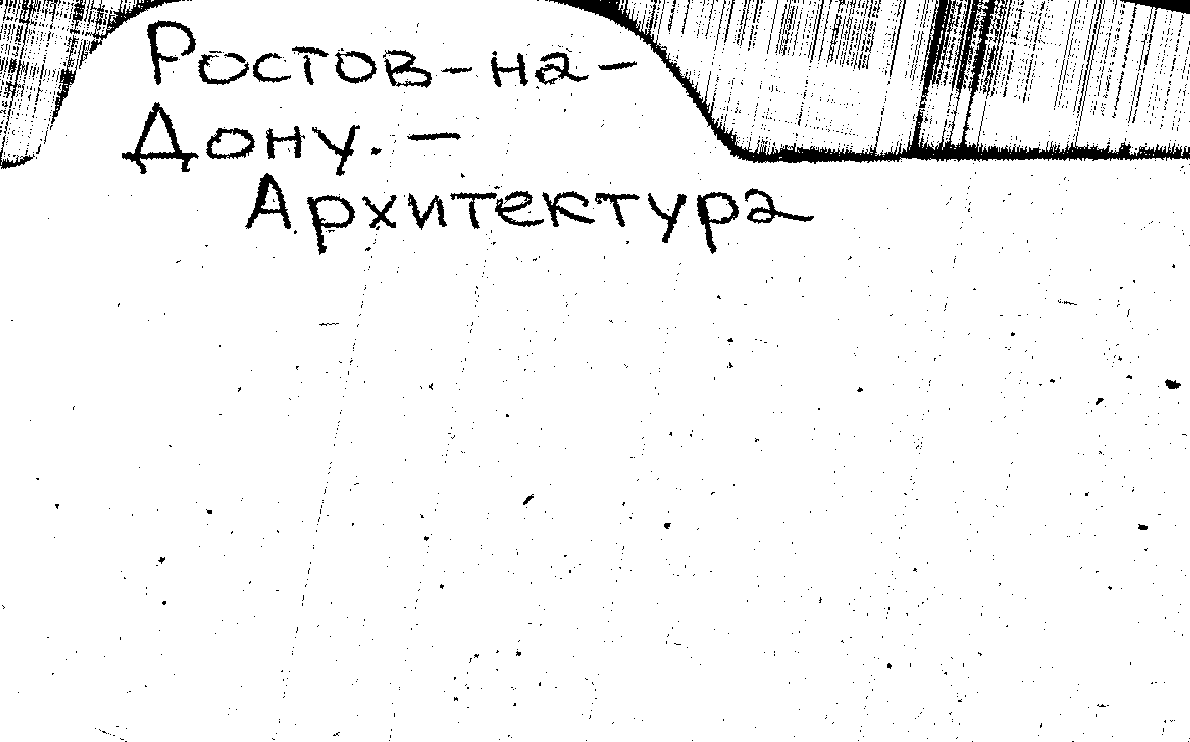 Ростов-на-
Дону. —
Архитектура